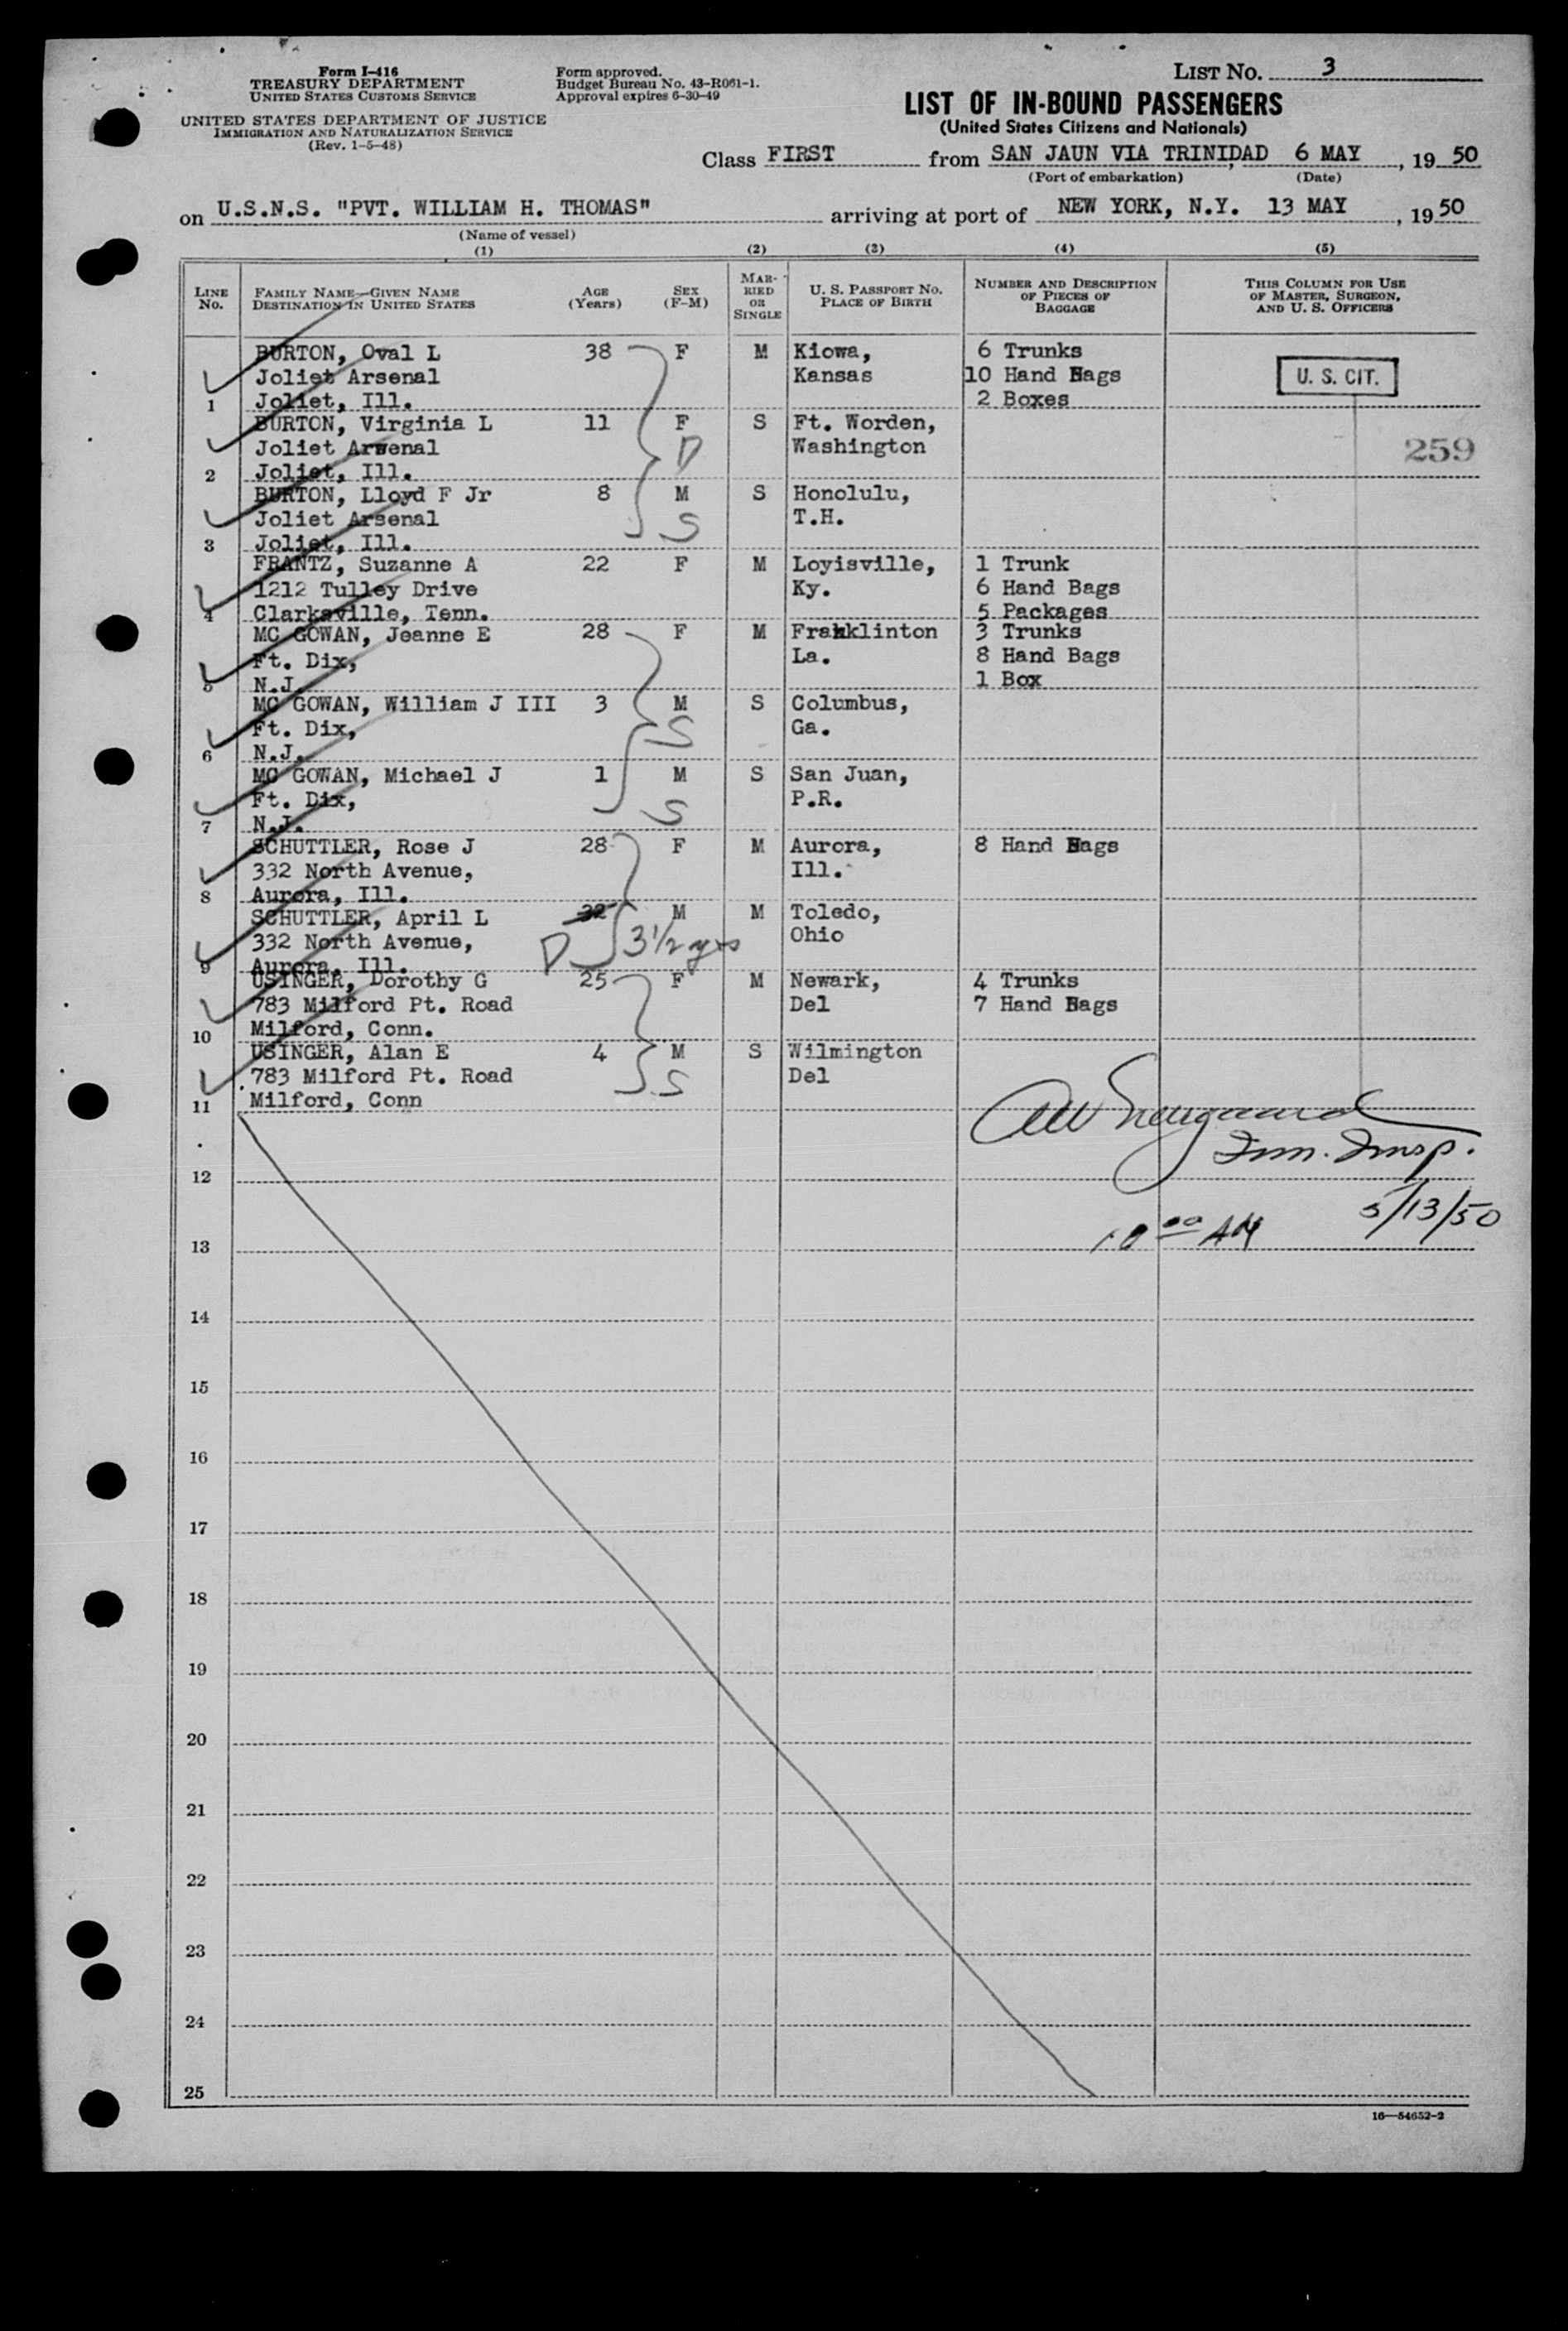 Form I-416
TREASURY DEPARTMENT
UNITED STATES CUSTOMS SERVICE
UNITED STATES DEPARTMENT OF JUSTICE
IMMIGRATION AND NATURALIZATION SERVICE
(Rev. 1-5-48)
Form approved.
Budget Bureau No. 43-R061-1.
Approval expires 6-30-49
LIST No. 3
LIST OF IN-BOUND PASSENGERS
(United States Citizens and Nationals)
Class FIRST from SAN JAUN VIA TRINIDAD 6 MAY, 19 50
(Port of embarkation) (Date)
on U.S.N.S. "PVT. WILLIAM H. THOMAS" arriving at port of NEW YORK, N.Y. 13 MAY, 19 50
(Name of vessel)
(1) (2) (3) (4) (5)
LINE No. FAMILY NAME—GIVEN NAME DESTINATION IN UNITED STATES AGE (Years) SEX (F-M) MARRIED OR SINGLE U. S. PASSPORT No. PLACE OF BIRTH NUMBER AND DESCRIPTION OF PIECES OF BAGGAGE THIS COLUMN FOR USE OF MASTER, SURGEON, AND U. S. OFFICERS
BURTON, Oval L 38 F M Kiowa, 6 Trunks
Joliet Arsenal Kansas 10 Hand Bags U. S. CIT.
1 Joliet, Ill. 2 Boxes
BURTON, Virginia L 11 F S Ft. Worden,
Joliet Arsenal D Washington 259
2 Joliet, Ill.
BURTON, Lloyd F Jr 8 M S Honolulu,
Joliet Arsenal S T.H.
3 Joliet, Ill.
FRANTZ, Suzanne A 22 F M Loyisville, 1 Trunk
1212 Tulley Drive Ky. 6 Hand Bags
4 Clarksville, Tenn. 5 Packages
MC GOWAN, Jeanne E 28 F M Franklinton 3 Trunks
Ft. Dix, La. 8 Hand Bags
5 N.J. 1 Box
MC GOWAN, William J III 3 M S Columbus,
Ft. Dix, S Ga.
6 N.J.
MC GOWAN, Michael J 1 M S San Juan,
Ft. Dix, S P.R.
7 N.J.
SCHUTTLER, Rose J 28 F M Aurora, 8 Hand Bags
332 North Avenue, Ill.
8 Aurora, Ill.
SCHUTTLER, April L 32 M M Toledo,
332 North Avenue, D 3 1/2 yrs Ohio
9 Aurora, Ill.
USINGER, Dorothy G 25 F M Newark, 4 Trunks
783 Milford Pt. Road Del 7 Hand Bags
10 Milford, Conn.
USINGER, Alan E 4 M S Wilmington
783 Milford Pt. Road S Del
11 Milford, Conn
Imm. Insp.
12
5/13/50
13 10 00 AM
14
15
16
17
18
19
20
21
22
23
24
25
16—54652-2